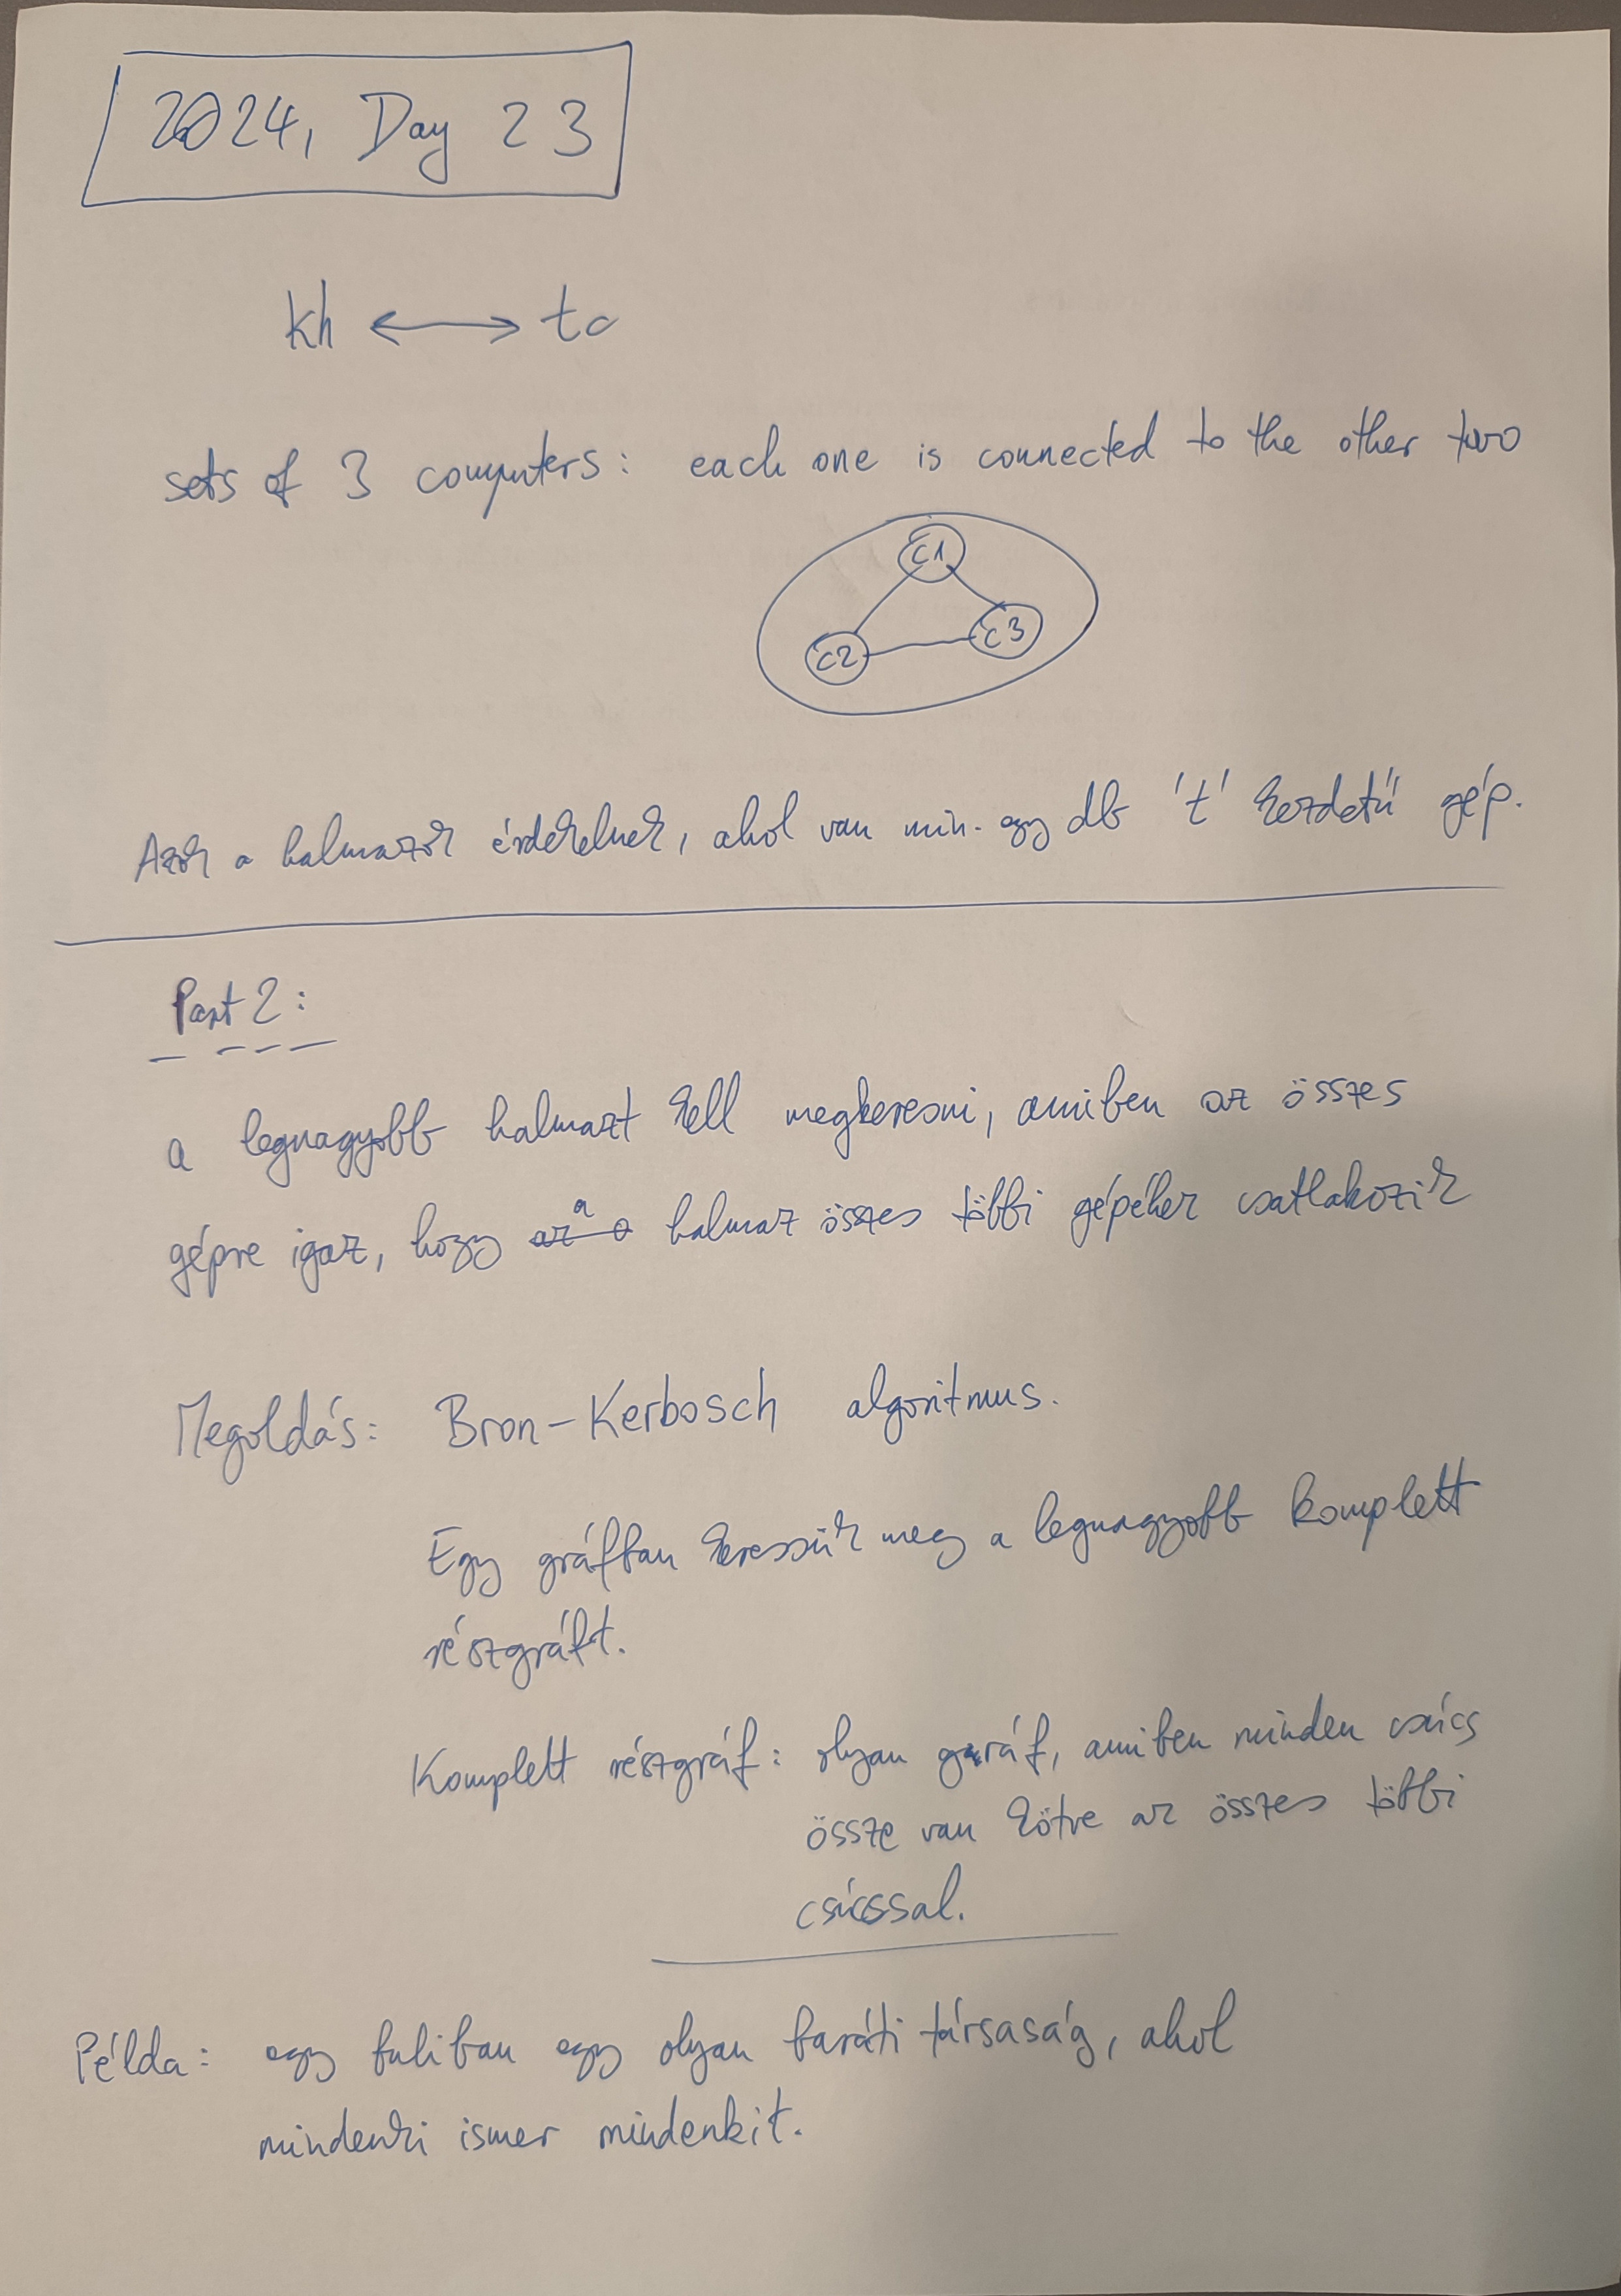 2024, Day 23
kh ⟷ tc
sets of 3 computers: each one is connected to the other two
C1
C2
C3
Azok a halmazok érdekelnek, ahol van min. egy db 't' kezdetű gép.
Part 2:
a legnagyobb halmazt kell megkeresni, amiben az összes
gépre igaz, hogy a halmaz összes többi gépéhez csatlakozik
Megoldás: Bron-Kerbosch algoritmus.
Egy gráfban keressük meg a legnagyobb komplett
részgráft.
Komplett részgráf: olyan gráf, amiben minden csúcs
össze van kötve az összes többi
csúcssal.
Példa: egy buliban egy olyan baráti társaság, ahol
mindenki ismer mindenkit.